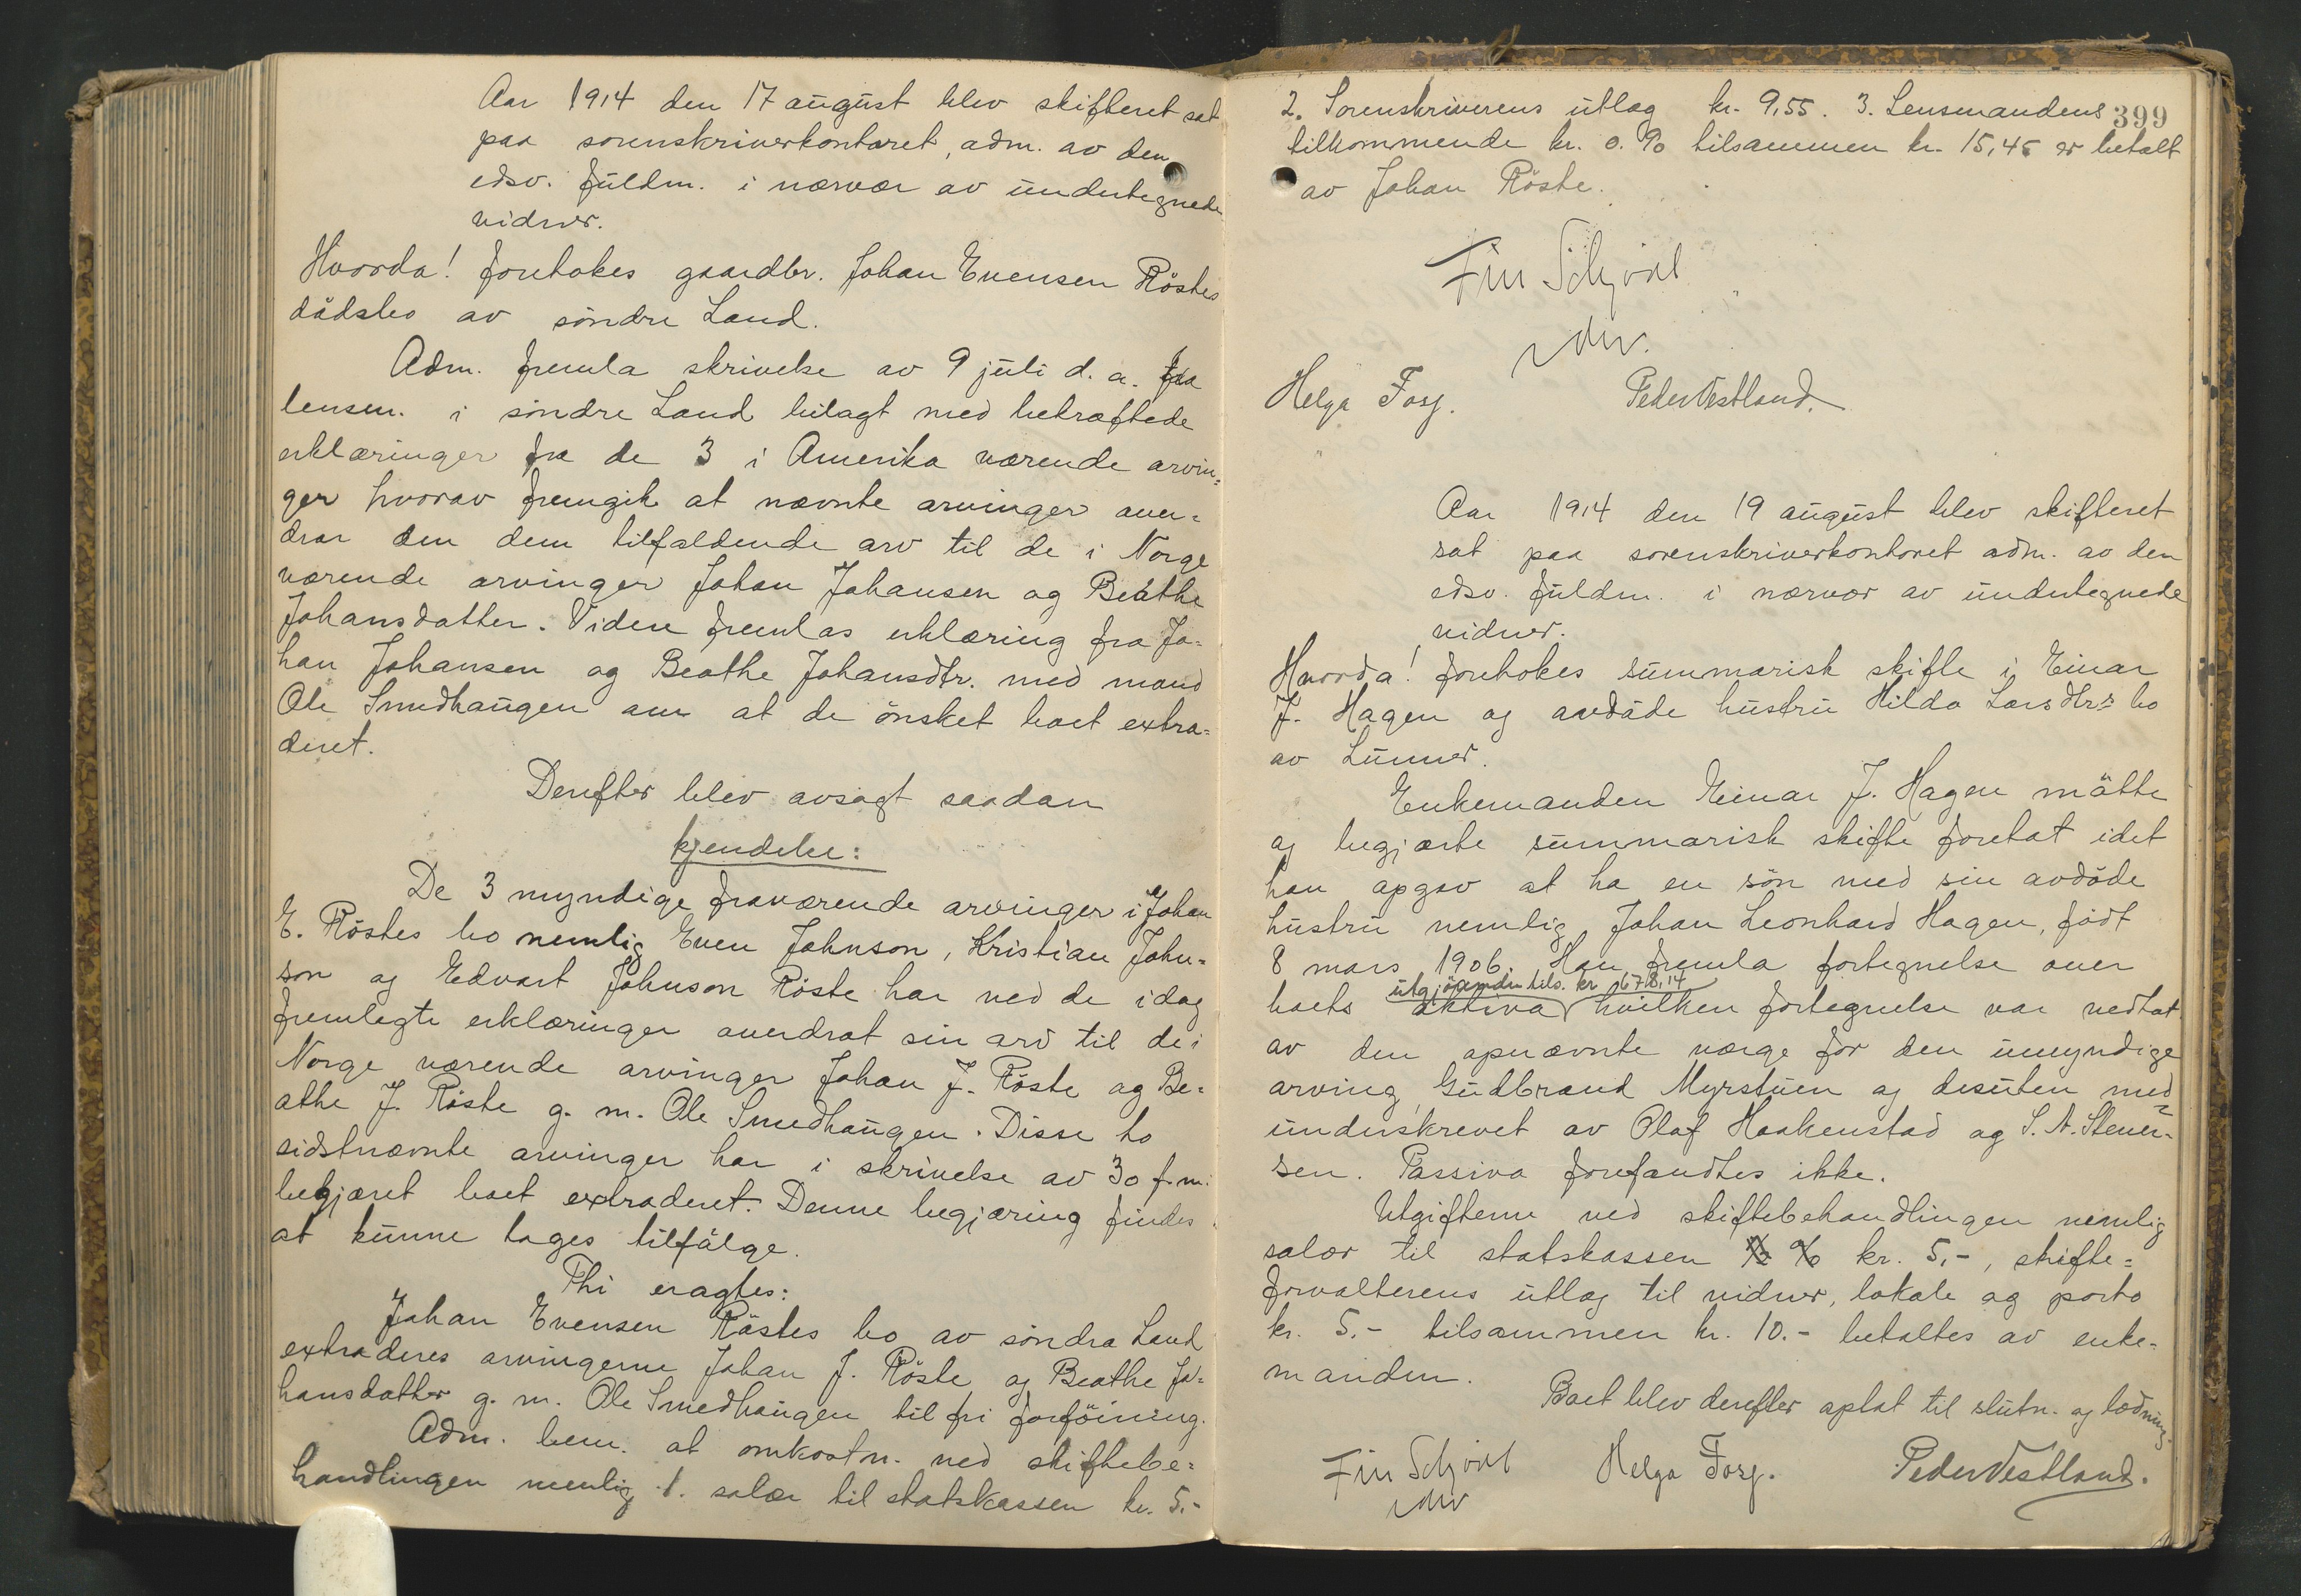 Aar 1914 den 17 august blev skifteret sat
paa sorenskriverkontoret, adm. av den
edsv. fuldm. i nærvær av undertegnede
vidner.
Hvorda! foretokes gaardbr. Johan Evensen Röstes
dödsbo av söndre Land.
Adm. fremla skrivelse av 9 juli d. a. fra
lensm. i söndre Land bilagt med bekræftede
erklæringer fra de 3 i Amerika værende arvin=
ger hvorav fremgik at nævnte arvinger over=
drar den dem tilfaldende arv til de i Norge
værende arvinger Johan Johansen og Beathe
Johansdatter. Videre fremlas erklæring fra Jo=
han Johansen og Beathe Johansdtr. med mand
Ole Smedhaugen om at de önsket boet extra=
deret.
Derefter blev avsagt saadan
kjendelse:
De 3 myndige fraværende arvinger i Johan
E. Röstes bo nemlig Even Johnson, Kristian John=
son og Edvart Johnson Röste har ved de idag
fremlagte erklæringer overdrat sin arv til de i
Norge værende arvinger Johan J. Röste og Be=
athe J. Röste g. m. Ole Smedhaugen. Disse to
sidstnævnte arvinger har i skrivelse av 30 f. m.
begjæret boet extraderet. Denne begjæring findes
at kunne tages tilfölge.
Thi eragtes:
Johan Evensen Röstes bo av söndre Land
extraderes arvingerne Johan J. Röste og Beathe Jo=
hansdatter g. m. Ole Smedhaugen til fri forföining.
Adm. bem. at omkostn. ved skiftebe=
handlingen nemlig 1. salær til statskassen kr. 5.-
399
2. Sorenskriverens utlæg kr. 9,55. 3. Lensmandens
tilkommende kr. 0.90 tilsammen kr. 15,45 er betalt
av Johan Röste.
Fin Schjöll
edsv.
Helga Fosj. Peder Vestland.
Aar 1914 den 19 august blev skifteret
sat paa sorenskriverkontoret adm. av den
edsv. fuldm. i nærvær av undertegnede
vidner.
Hvorda! foretokes summarisk skifte i Einar
J. Hagen og avdöde hustru Hilda Larsdtr:s bo
av Lunner.
Enkemanden Einar J. Hagen mötte
og begjærte summarisk skifte foretat idet
han opgav at ha en sön med sin avdöde
hustru nemlig Johan Leonhard Hagen, födt
8 mars 1906. Han fremla fortegnelse over
utgjörende tils. kr 678,14
boets aktiva hvilken fortegnelse var vedtat
av den opnævnte værge for den umyndige
arving, Gudbrand Myrstuen og desuten med=
underskrevet av Olaf Haakenstad og S. A. Stener=
sen. Passiva forefandtes ikke.
Utgifterne ved skiftebehandlingen nemlig
salær til statskassen kr. 5,-, skifte=
forvalterens utlæg til vidner, lokale og porto
kr. 5.- tilsammen kr. 10.- betaltes av enke=
manden.
Boet blev derefter optat til slutn. og lodning.
Fin Schjöll Helga Fosj. Peder Vestland.
edsv